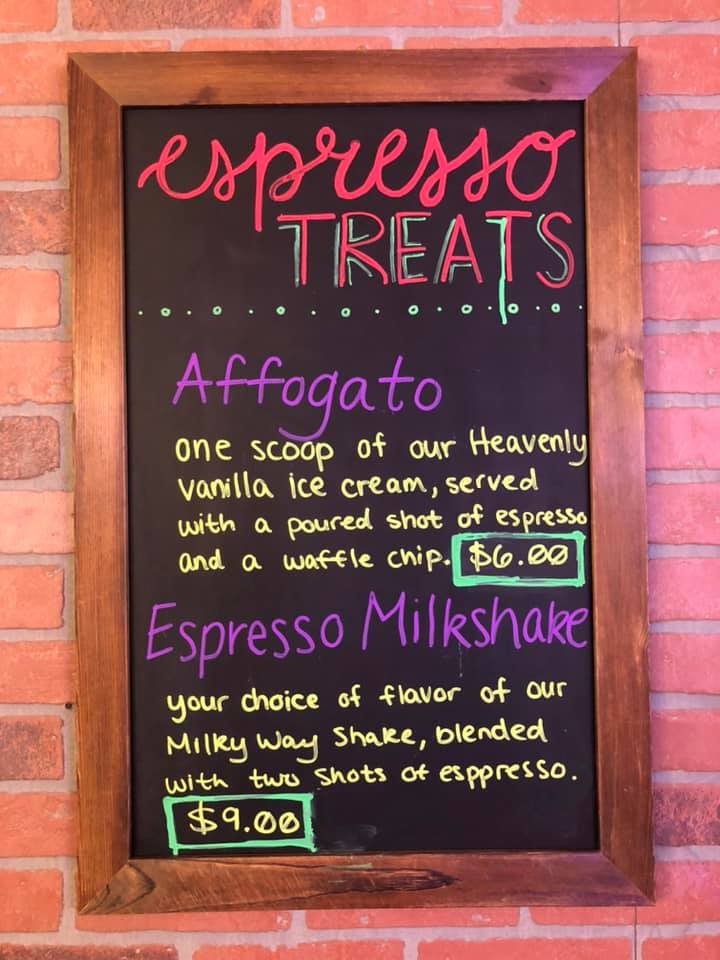 espresso
TREATS
Affogato
one scoop of our Heavenly
vanilla ice cream, served
with a poured shot of espresso
and a waffle chip. $6.00
Espresso Milkshake
your choice of flavor of our
Milky Way Shake, blended
with two shots of esppresso.
$9.00